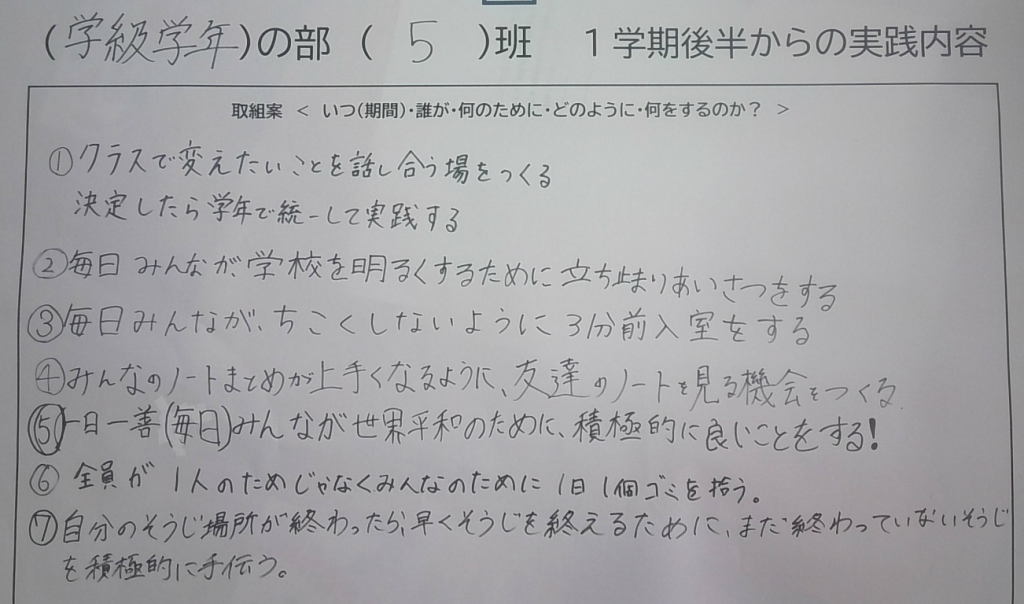 (学級学年)の部 ( 5 )班 1学期後半からの実践内容
取組案 < いつ(期間)・誰が・何のために・どのように・何をするのか? >
①クラスで変えたいことを話し合う場をつくる
決定したら学年で統一して実践する
②毎日 みんなが、学校を明るくするために立ち止まりあいさつをする
③毎日みんなが、ちこくしないように3分前入室をする
④みんなのノートまとめが上手くなるように、友達のノートを見る機会をつくる
⑤一日一善(毎日)みんなが世界平和のために、積極的に良いことをする!
⑥ 全員が 1人のためじゃなくみんなのために 1日1個ゴミを拾う。
⑦自分のそうじ場所が終わったら、早くそうじを終えるために、まだ終わっていないそうじ
を積極的に手伝う。